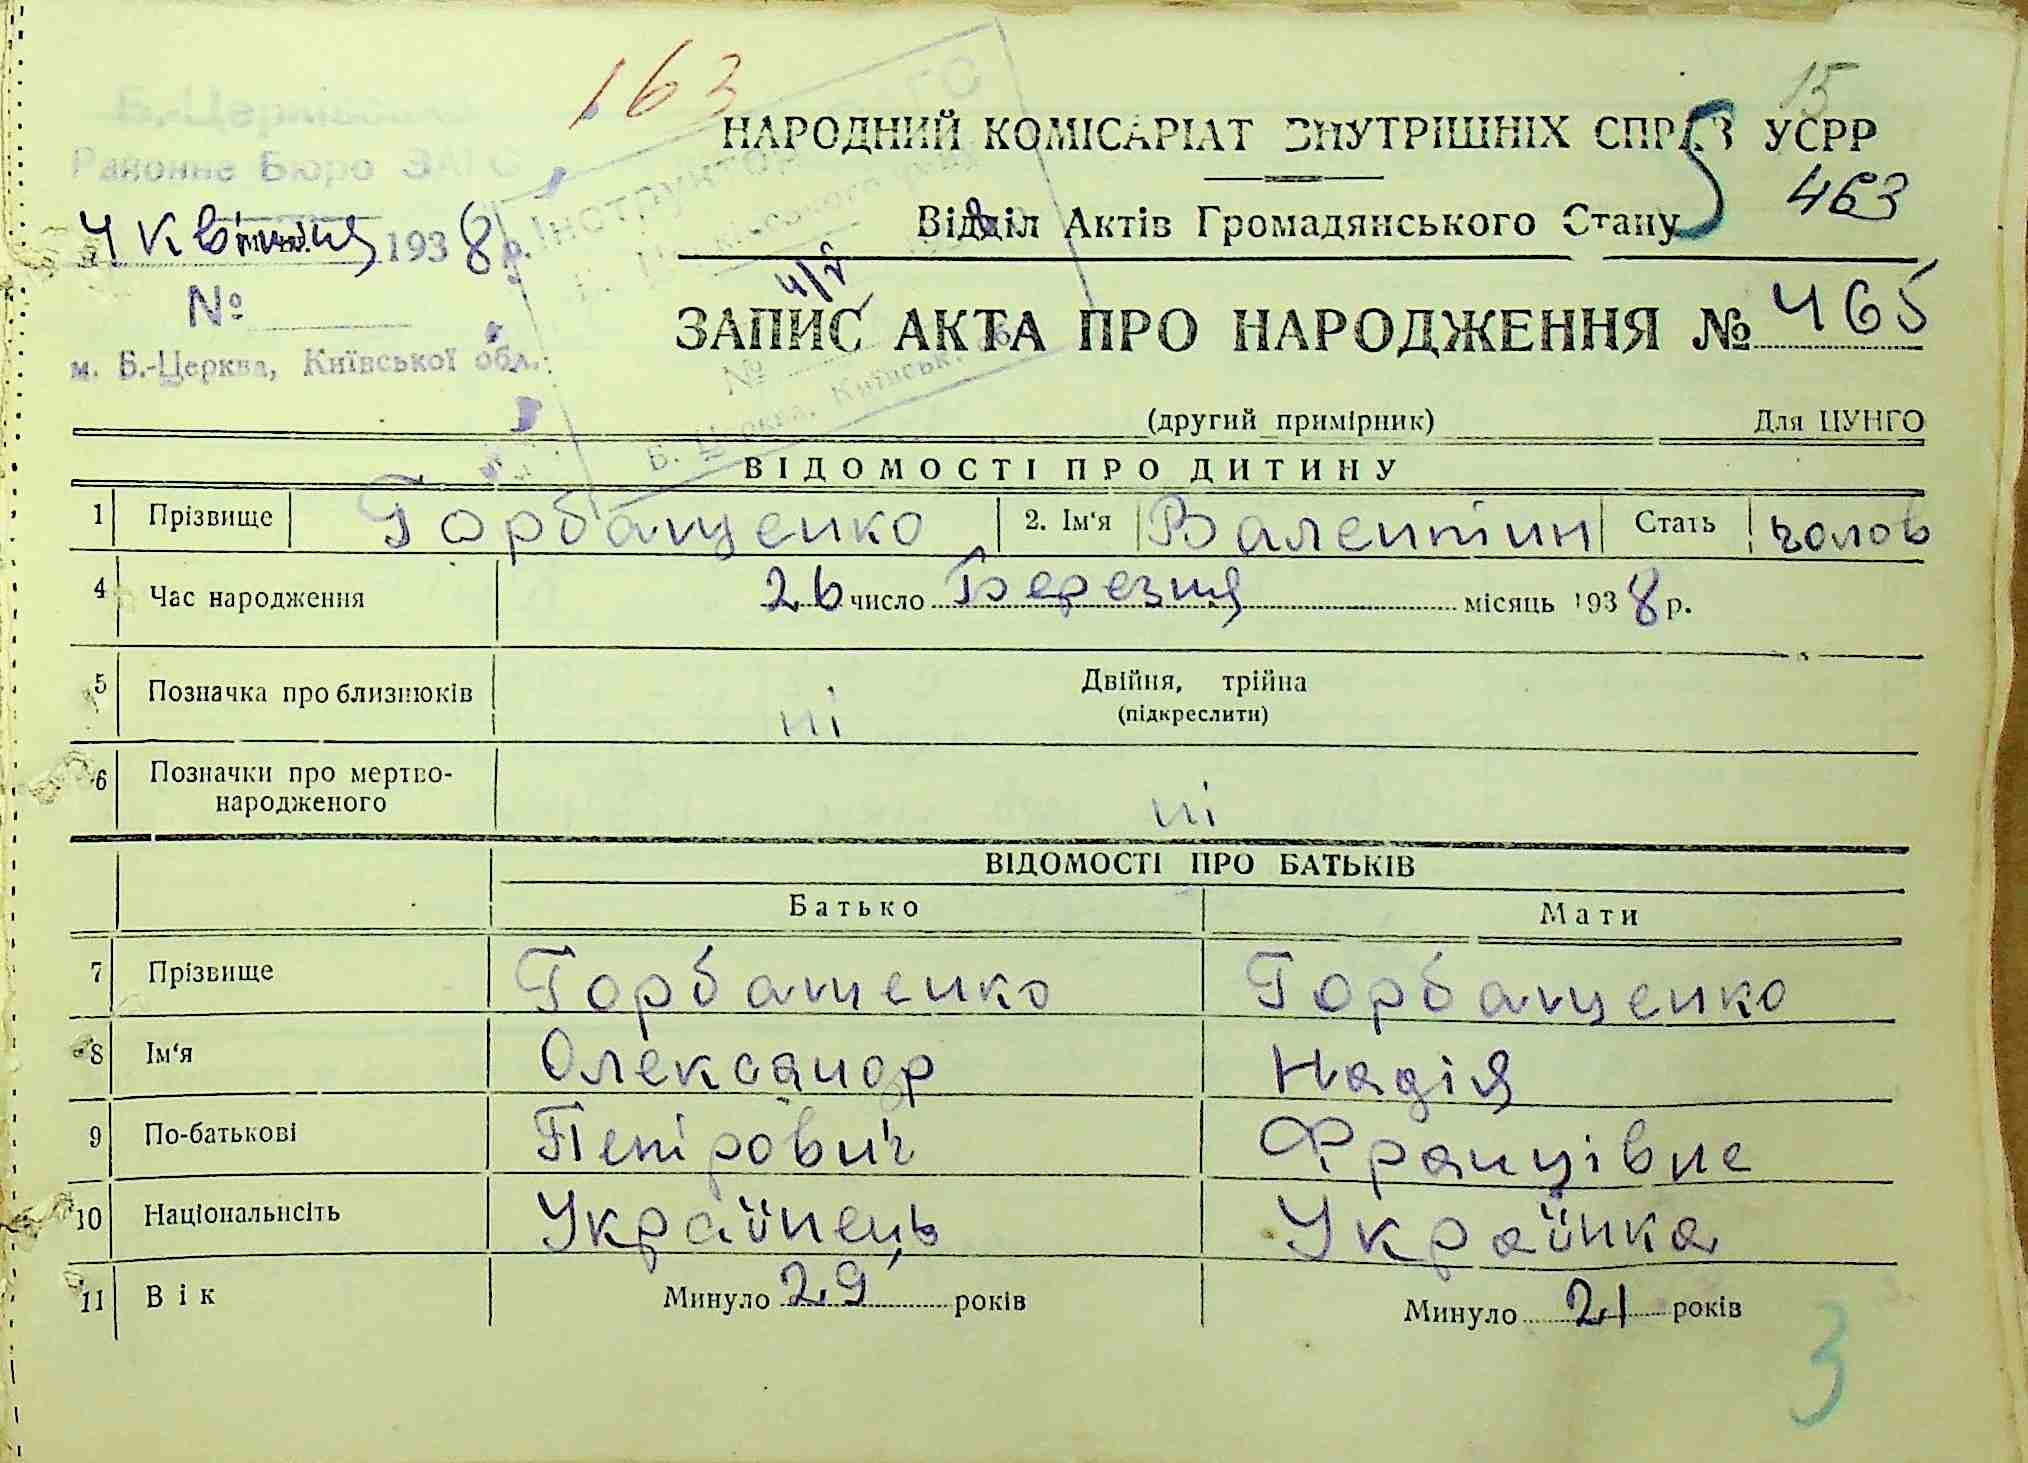 163
15
Б.-Церківське
Районне Бюро ЗАГС
НАРОДНИЙ КОМІСАРІАТ ВНУТРІШНІХ СПРАВ УСРР
5
463
4 квітня 1938 р.
Інструктор
Відділ Актів Громадянського Стану
№
4/V
ЗАПИС АКТА ПРО НАРОДЖЕННЯ № 465
м. Б.-Церква, Київської обл.
№
Б. Церква, Київськ.
(другий примірник) Для ЦУНГО
ВІДОМОСТІ ПРО ДИТИНУ
1 Прізвище Горбащенко 2. Ім'я Валентин Стать чолов
4 Час народження 26 число Березня місяць 1938 р.
5 Позначка про близнюків ні Двійня, трійня
(підкреслити)
6 Позначки про мертво-
народженого ні
ВІДОМОСТІ ПРО БАТЬКІВ
Батько Мати
7 Прізвище Горбащенко Горбащенко
8 Ім'я Олександр Надія
9 По-батькові Петрович Францівна
10 Національність Українець Українка
11 Вік Минуло 29 років Минуло 21 років
3